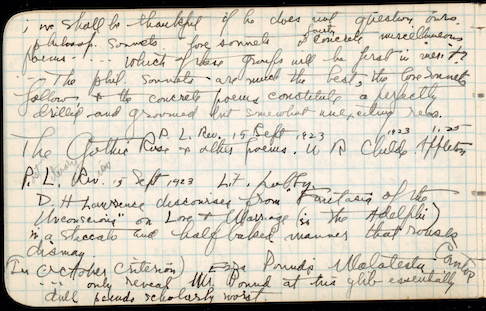 ; we shall be thankful if he does not question ours
philosop. Sonnets love sonnets concrete miscellaneous
poems - ... which of these groups will be first in merit?
... The phil. Sonnets are much the best, the love sonnets
follow & the concrete poems constitute a perfectly
drilled and groomed but somewhat unexciting rear.
P. L. Rev. 15 Sept 1923
The Gothic Rose & other poems. W R Childe. Appleton
1923 1.25
P. L. Rev. 15 Sept 1923 Lit. Lobby.
D. H Lawrence discourses from "Fantasia of the
Unconscious" on Love & Marriage (in the Adelphi)
in a staccato and half baked manner that rouses
dismay
(In October Criterion) Ezra Pound's Malatesta Cantos
... only reveal Mr. Pound at his glib essentially
dull pseudo scholarly worst.